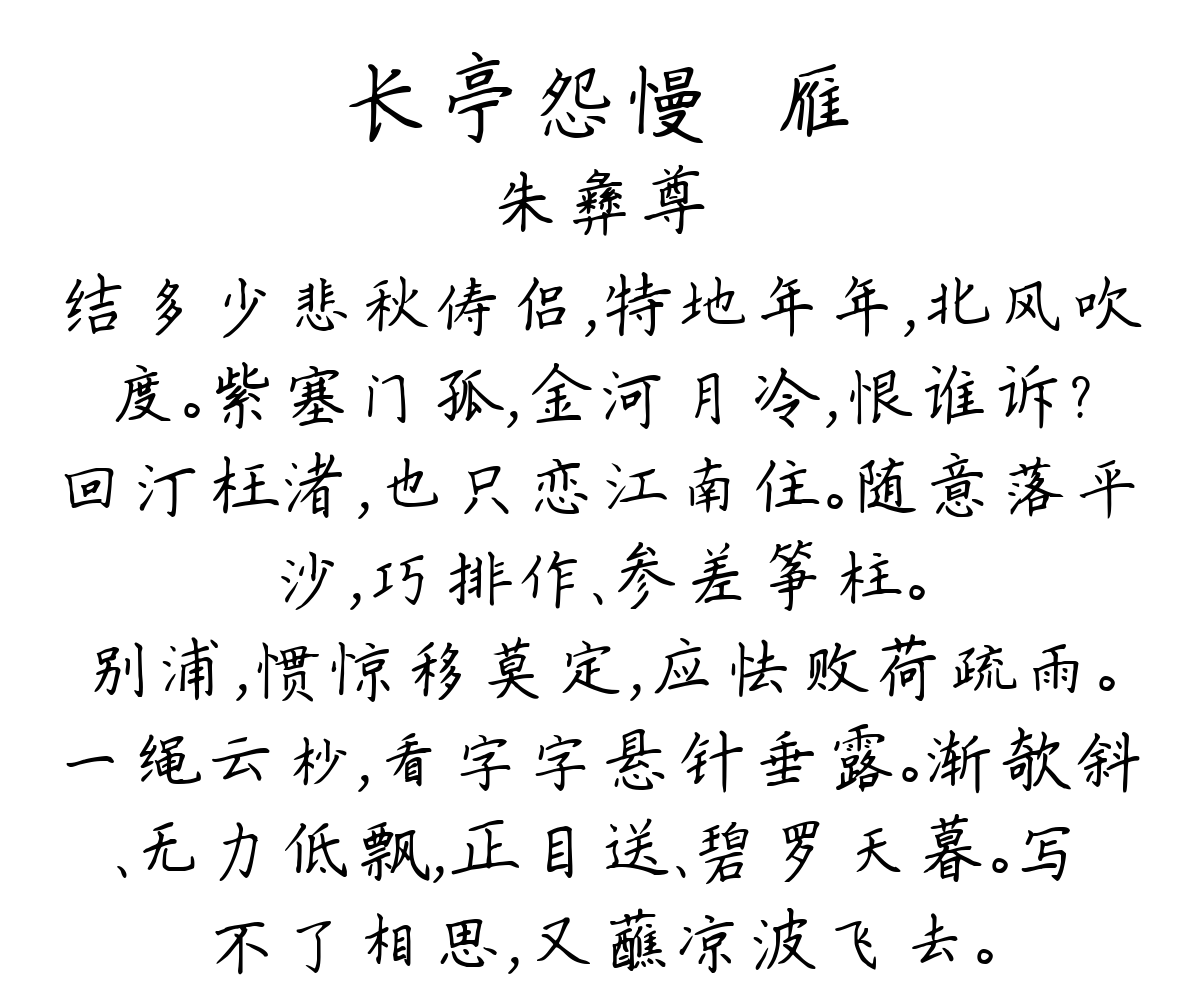 长亭怨慢 雁
朱彝尊
结多少悲秋俦侣,特地年年,北风吹
度。紫塞门孤,金河月冷,恨谁诉?
回汀枉渚,也只恋江南住。随意落平
沙,巧排作、参差筝柱。
别浦,惯惊移莫定,应怯败荷疏雨。
一绳云杪,看字字悬针垂露。渐欹斜
、无力低飘,正目送、碧罗天暮。写
不了相思,又蘸凉波飞去。